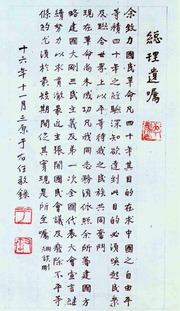 總理遺囑
余致力國民革命凡四十年其目的在求中國之自由平
等積四十年之經驗深知欲達到此目的必須喚起民衆
及聯合世界上以平等待我之民族共同奮鬥
現在革命尚未成功凡我同志務須依照余所著建國方
略建國大剛三民主義及第一次全國代表大會宣言繼
續努力以求貫徹最近主張開國民會議及廢除不平等
條約尤須於最短期間促其實現是所至囑 綱誤剛
十六年十一月三原于右任敬錄